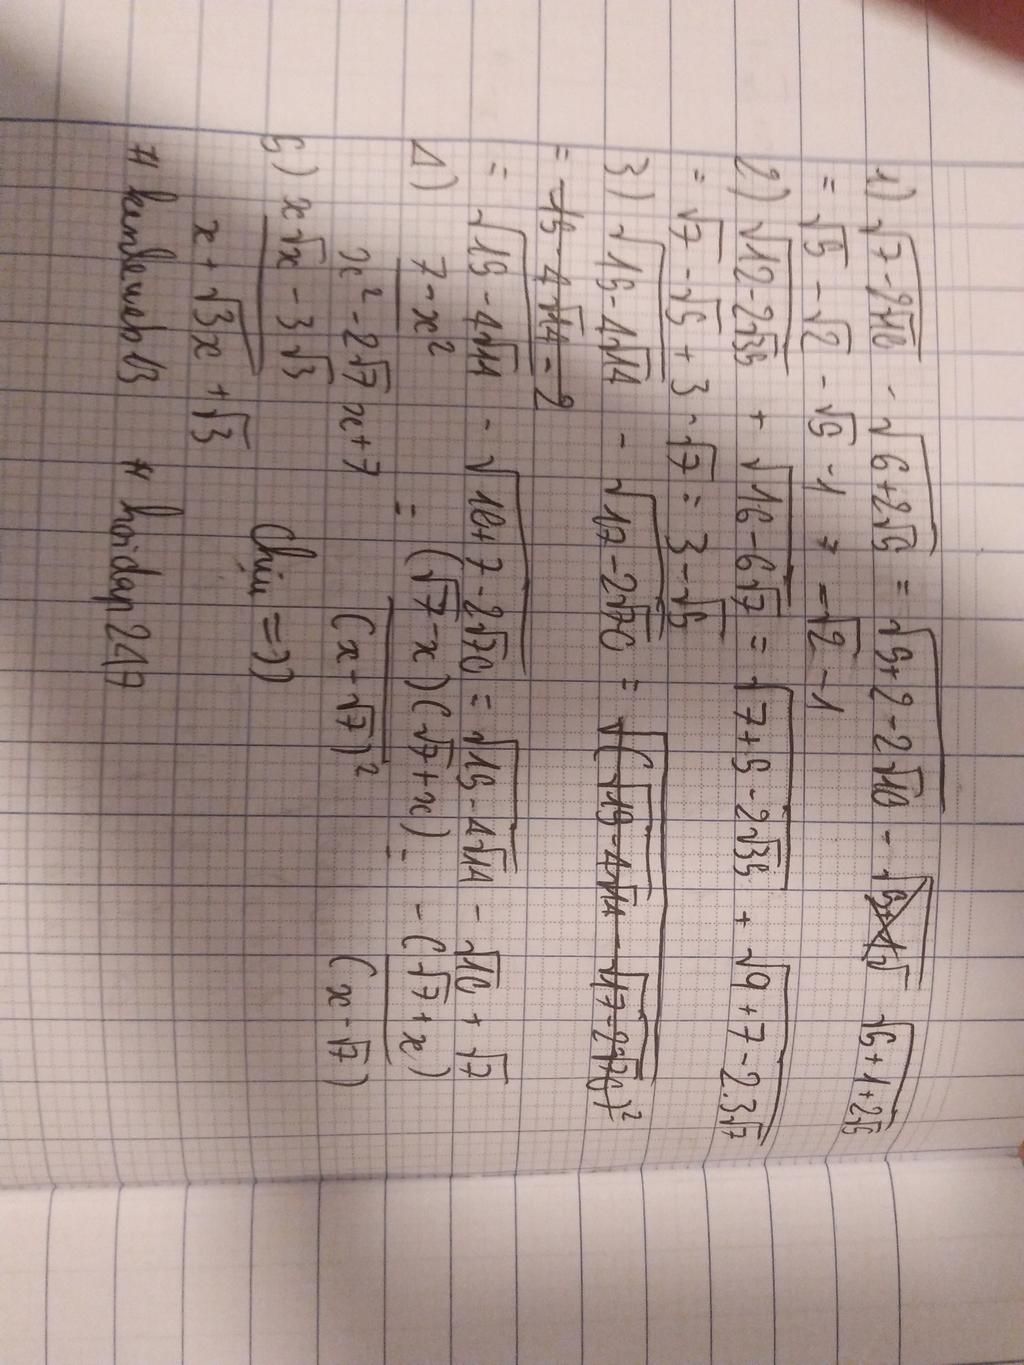 1) √7-2√10 - √6+2√5 = √5+2-2√10 - √5+1+2√5
= √5 - √2 - √5 - 1 = -√2 - 1
2) √12-2√35 + √16-6√7 = √7+5-2√35 + √9+7-2.3√7
= √7 - √5 + 3 - √7 = 3-√5
3) √15-4√14 - √17-2√70 = √(√15-4√14 - √17-2√70)²
= 15-4√14 - 2
= √15-4√14 - √10+7-2√70 = √15-4√14 - √10 + √7
4) 7-x² / x²-2√7x+7 = (√7-x)(√7+x) / (x-√7)² = -(√7+x) / (x-√7)
5) x√x - 3√3 / x + √3x + √3
Chịu =))
# kimdemob13 # hoidap247